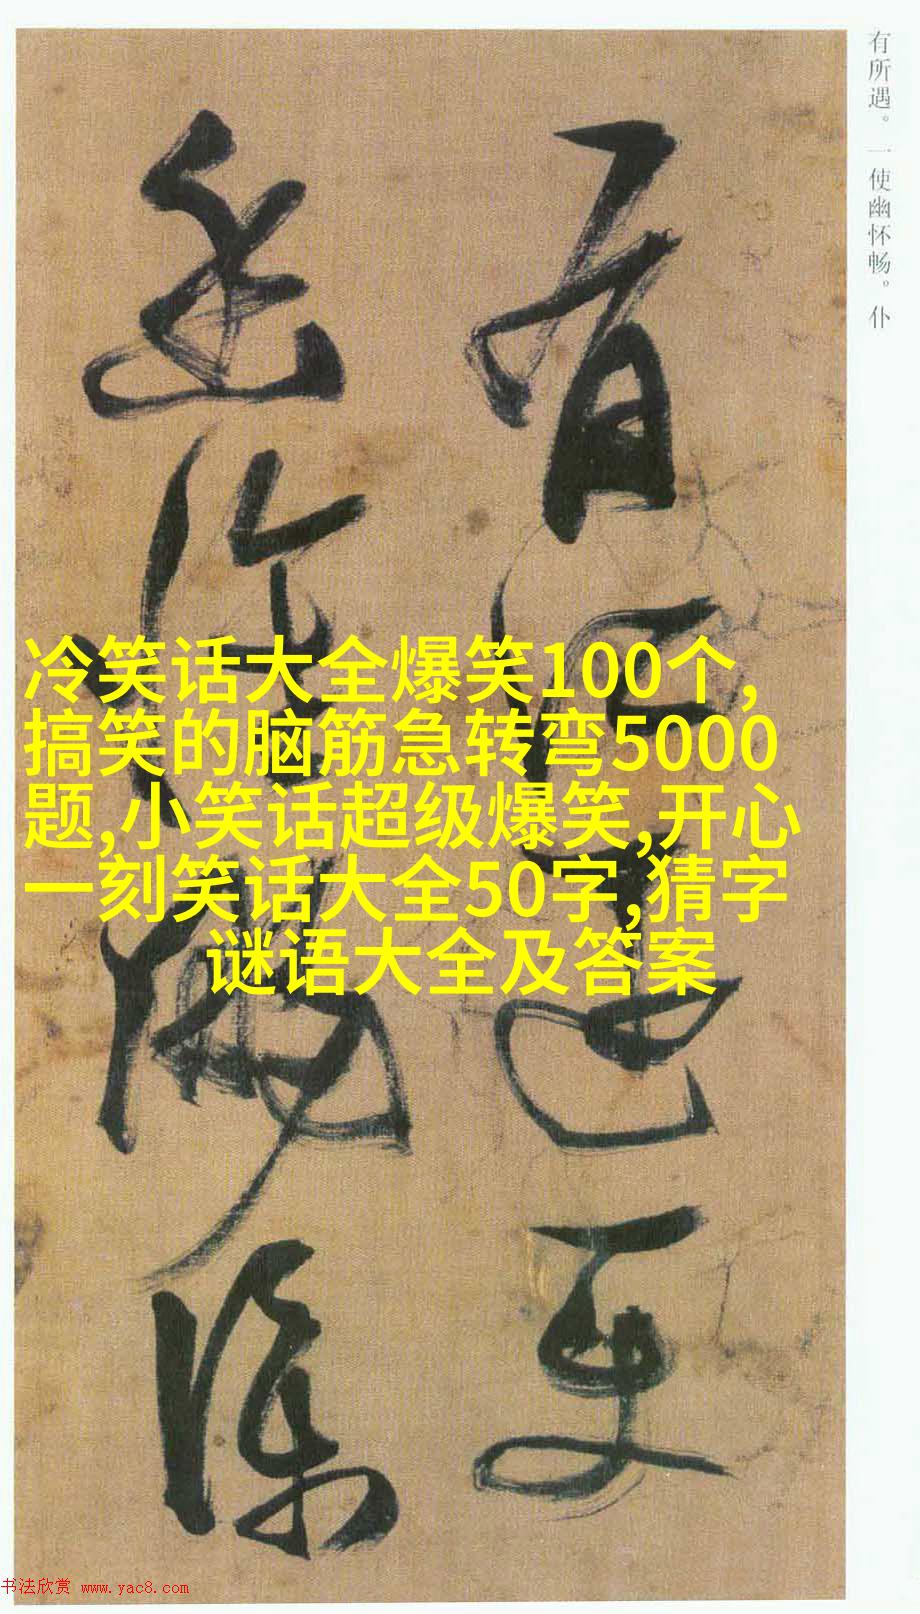 有所遇。一使幽怀畅。仆
有所遇一使
幽懷暢僕
冷笑话大全爆笑100个,
搞笑的脑筋急转弯5000
题,小笑话超级爆笑,开心
一刻笑话大全50字,猜字
谜语大全及答案
书法欣赏 www.yac8.com